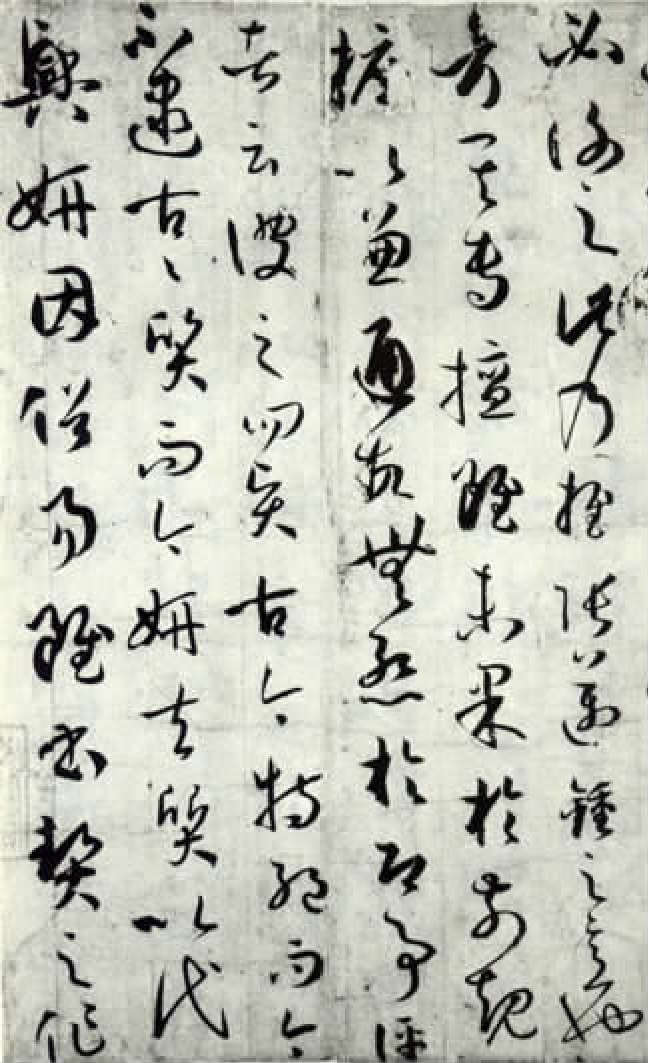 必謝之此乃推張邁鍾之意也
考其專擅雖未果於前規
摭以兼通故無慙於即事評
者云彼之四賢古今特絕而今
不逮古々質而今妍夫質以代
興妍因俗易雖書契之作